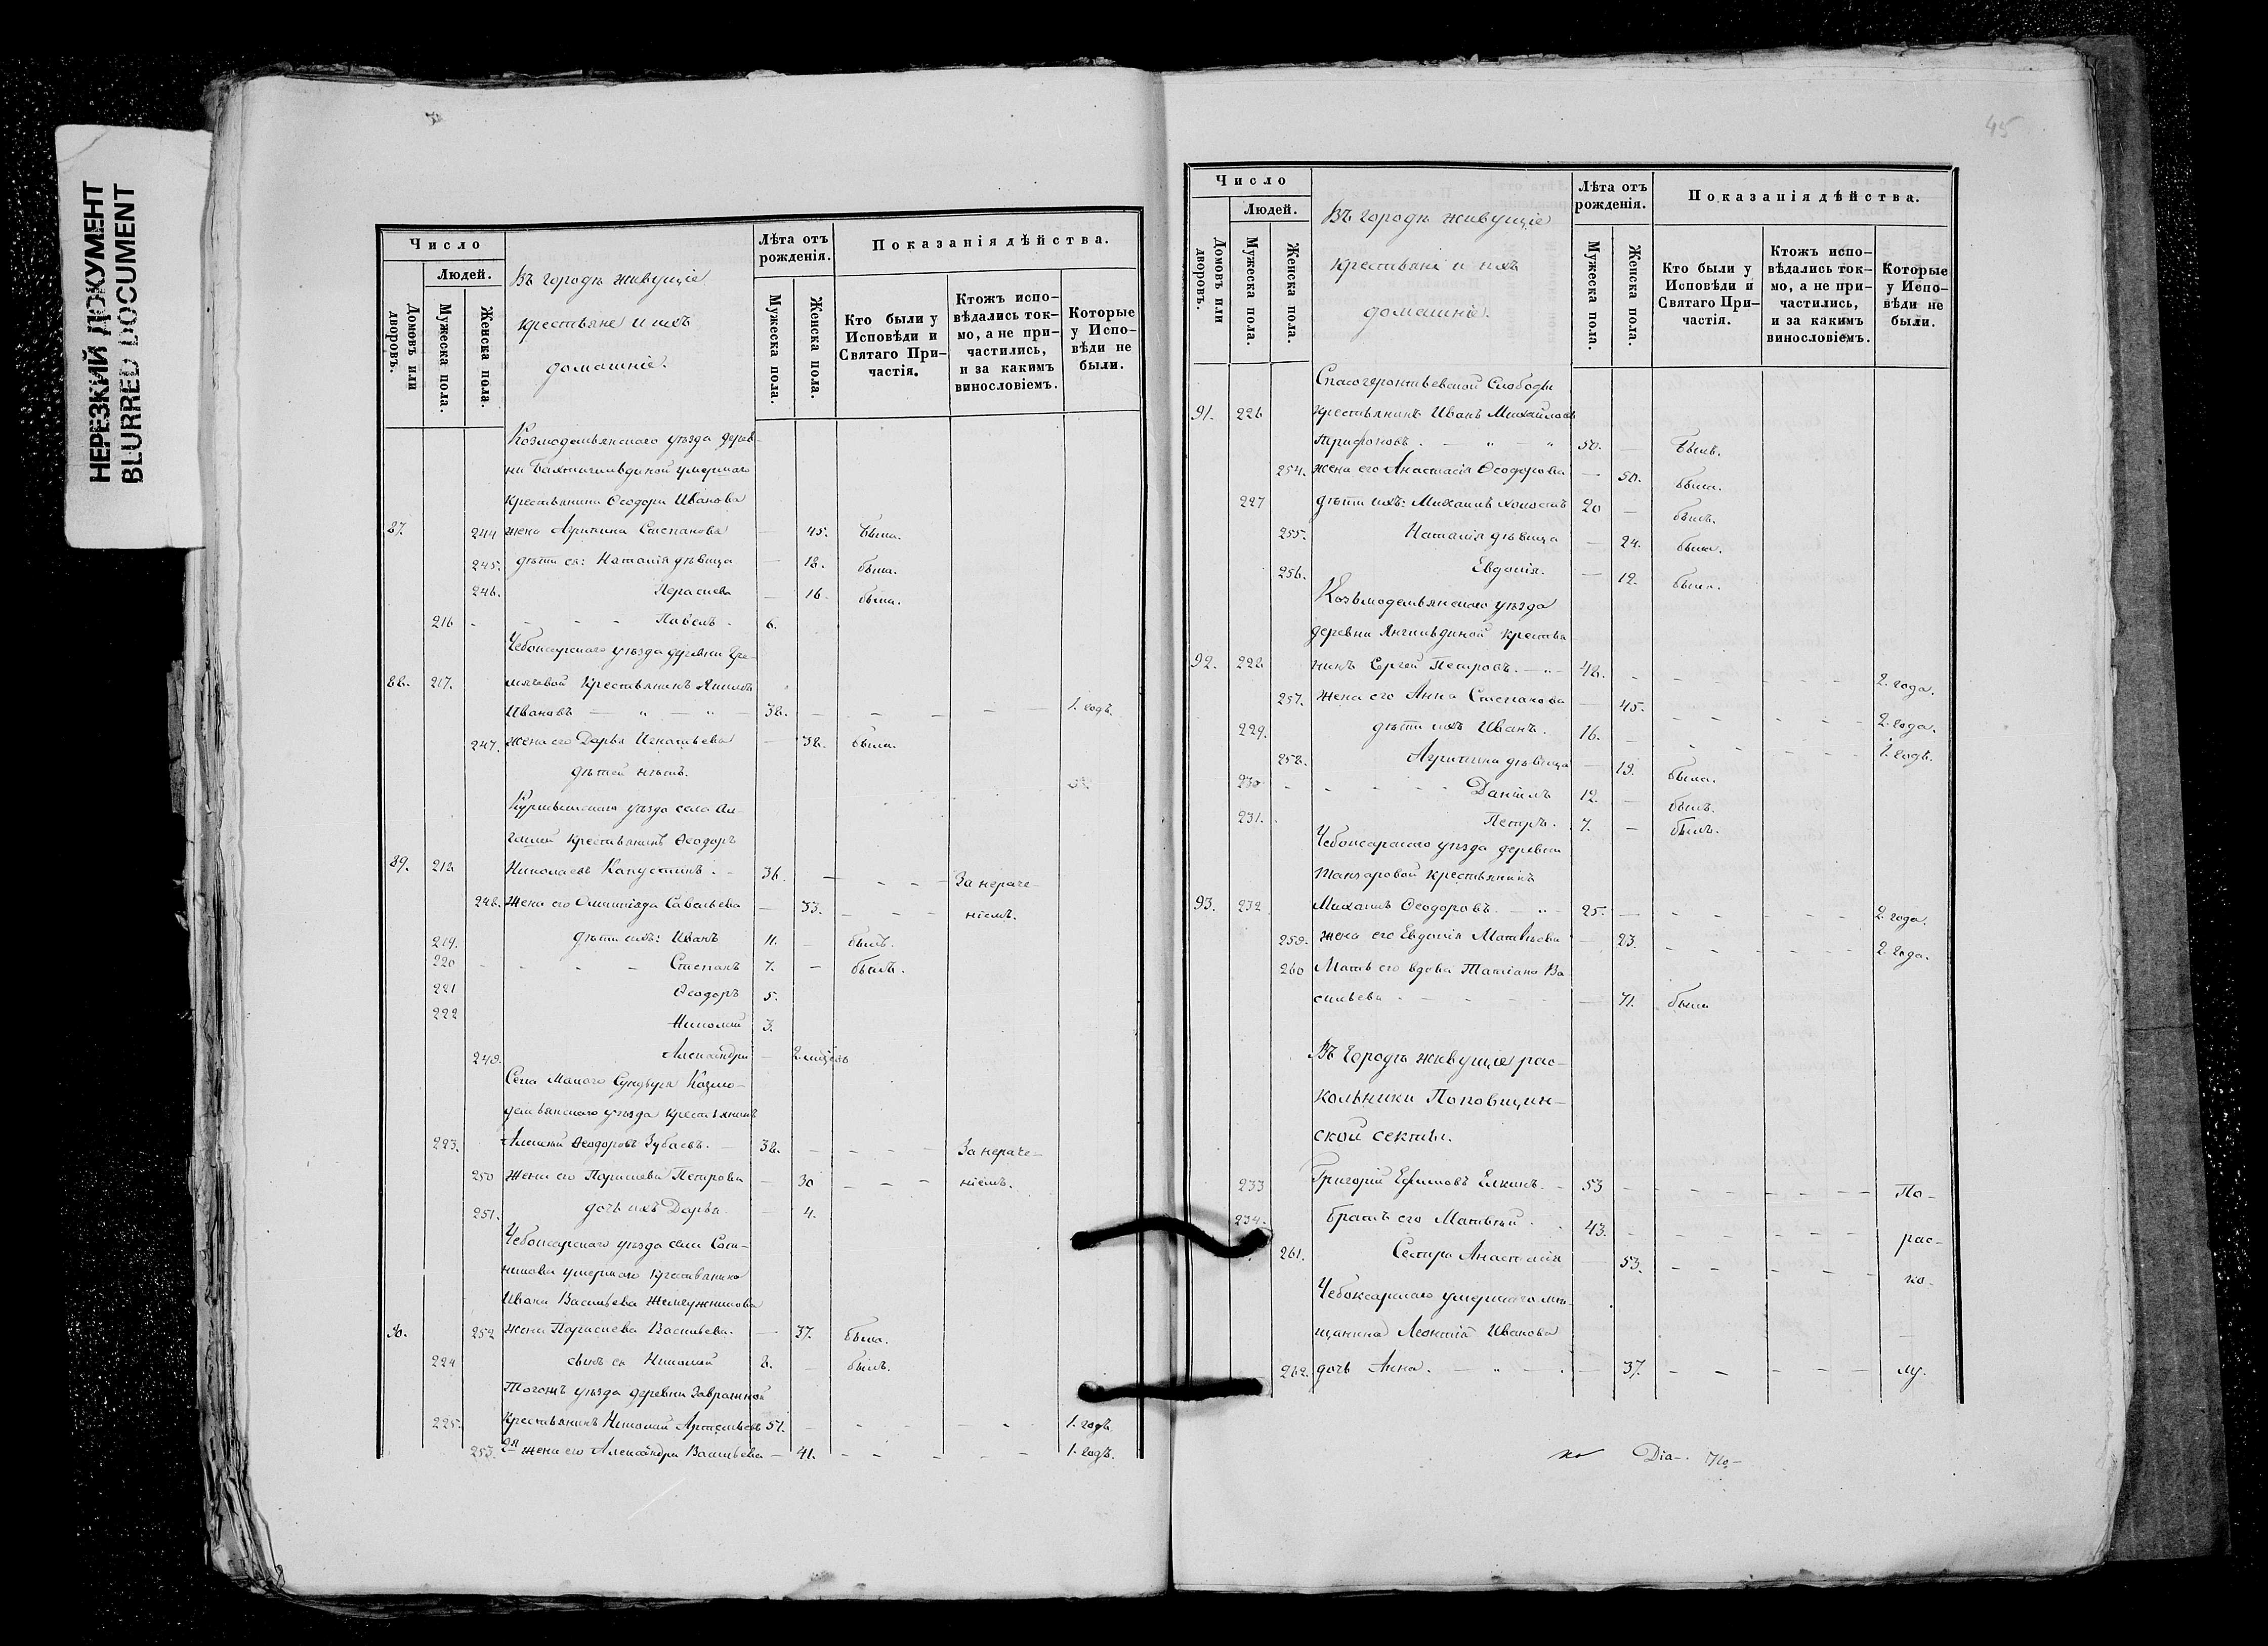 НЕРЕЗКИЙ ДОКУМЕНТ
BLURRED DOCUMENT
Число
Людей.
Домовъ или дворовъ.
Мужеска пола.
Женска пола.
Въ городѣ живущіе
крестьяне и ихъ
домашніе.
Лѣта отъ рожденія.
Мужеска пола.
Женска пола.
Показанія дѣйства.
Кто были у Исповѣди и Святаго Причастія.
Ктожъ исповѣдались токмо, а не причастились, и за какимъ винословіемъ.
Которые у Исповѣди не были.
Козмодемьянскаго уѣзда дерев-
ни умершаго
крестьянина Ѳеодора Иванова
87. 244 жена Агрипина Степанова — 45. была.
245. дѣти ея: Наталія дѣвица — 18. была.
246. Параскева — 16 была.
216 - - - - Павелъ - 6.
Чебоксарскаго уѣзда деревни
88. 217. крестьянинъ
Ивановъ — „ — „ — 38. — — — — — 1. годъ.
247. жена его Дарья Игнатьева — 38. была.
дѣтей нѣтъ.
Курмышскаго уѣзда села Ал-
гашей крестьянинъ Ѳеодоръ
89. 218 Николаевъ Капустинъ. - 36. — - - — За нераче-
248. жена его Олимпіада Савельева — 33. - - - ніемъ.
219. дѣти ихъ: Иванъ 11. - былъ.
220 - - - - Степанъ 7. - былъ.
221 Ѳеодоръ 5.
222 Николай 3.
249. Александра — 2. мѣсяц.
Села Малаго Сундыря Козмо-
демьянскаго уѣзда крестьянинъ
223. Алексѣй Ѳеодоровъ Зубаевъ. — 38. - - - - За нераче-
250 жена его Параскева Петрова — 30 - - - ніемъ.
251. дочь ихъ Дарья — 4.
Чебоксарскаго уѣзда села Сот-
никова умершаго крестьянина
Ивана Васильева Жемчужникова
90. 252 жена Параскева Васильева. — 37. была.
224 сынъ ея Николай 8. - былъ.
Тогожъ уѣзда деревни Завражной
225. крестьянинъ Николай Артемьевъ 51. - - - - - 1. годъ
253. 2я жена его Александра Васильева — 41. - - - - 1. годъ.
45
Число
Людей.
Домовъ или дворовъ.
Мужеска пола.
Женска пола.
Въ городѣ живущіе
крестьяне и ихъ
домашніе.
Лѣта отъ рожденія.
Мужеска пола.
Женска пола.
Показанія дѣйства.
Кто были у Исповѣди и Святаго Причастія.
Ктожъ исповѣдались токмо, а не причастились, и за какимъ винословіемъ.
Которые у Исповѣди не были.
Спасогеронтьевской Слободы
91. 226 крестьянинъ Иванъ Михайловъ
Трифоновъ. — „ — „ 50. — былъ.
254. жена его Анастасія Ѳеодорова — 50. была.
227 дѣти ихъ: Михаилъ холостъ 20 — былъ.
255. Наталія дѣвица — 24. была.
256. Евдокія. — 12. была.
Козьмодемьянскаго уѣзда
деревни Янгильдиной крестья-
92. 228 нинъ Сергей Петровъ. — „ — 48. - - - - - - 2. года.
257. жена его Анна Степанова — 45. - - - - - 2. года.
229. дѣти ихъ Иванъ. 16. - - - - - 1. годъ.
258. Агрипина дѣвица — 19. была.
230 - - - - - Даніилъ 12. — былъ.
231. Петръ. 7. — былъ.
Чебоксарскаго уѣзда деревни
крестьянинъ
93. 232 Михаилъ Ѳеодоровъ. — „ - 25. — - - - - - 2. года.
259. жена его Евдокія Матвѣева — 23. - - - - - 2. года.
260 Мать его вдова Татіана Ва-
сильева - - - - - — 71. была
Въ городѣ живущіе рас-
кольники Поповщин-
ской секты.
233 Григорій Ефимовъ Елкинъ. - 53 - - - - - - По-
234. братъ его Матвѣй . . 43. - - - - - - рас-
261. Сестра Анастасія — 53. - - - - - ко-
Чебоксарскаго умершаго мѣ-
щанина Леонтія Иванова
262. дочь Анна. — „ — . — 37. - - - - - лу.
Діа-.